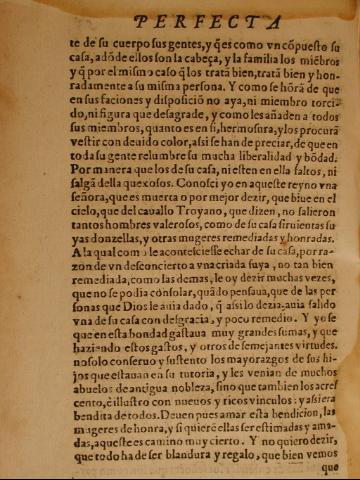 PERFECTA
te de su cuerpo sus gentes, y q̃ es como vn cõpuesto su
casa, adõde ellos son la cabeça, y la familia los miẽbros
y q̃ por el mismo caso q̃ los tratã bien, tratã bien y hon-
radamente a su misma persona. Y como se hõrã de que
en sus faciones y disposiciõ no aya, ni miembro torci-
do, ni figura que desagrade, y como les añaden a todos
sus miembros, quanto es en si, hermosura, y los procurã
vestir con deuido color, assi se han de preciar, de que en
toda su gente relumbre su mucha liberalidad y bõdad.
Por manera que los de su casa, ni esten en ella faltos, ni
salgã della quexosos. Conosci yo en aqueste reyno vna
señora, que es muerta o por mejor dezir, que biue en el
cielo, que del cauallo Troyano, que dizen, no salieron
tantos hombres valerosos, como de su casa siruientas su
yas donzellas, y otras mugeres remediadas y honradas.
A la qual como le aconteciesse echar de su casa, por ra-
zon de vn desconcierto a vna criada suya, no tan bien
remediada, como las demas, le oy dezir muchas vezes,
que no se podia cõsolar, quãdo pensaua, que de las per
sonas que Dios le auia dado, q̃ assi lo dezia, auia salido
vna de su casa con desgracia, y poco remedio. Y yo se
que en esta bondad gastaua muy grandes sumas, y que
haziendo estos gastos, y otros de semejantes virtudes.
no solo conseruo y sustento los mayorazgos de sus hi-
jos que estauan en su tutoria, y les venian de muchos
abuelos de antigua nobleza, sino que tambien los acres
cento, è illustro con nueuos y ricos vinculos: y assi era
bendita de todos. Deuen pues amar esta bendicion, las
mugeres de honra, y si quierẽ ellas ser estimadas y ama-
das, aqueste es camino muy cierto. Y no quiero dezir,
que todo ha de ser blandura y regalo, que bien vemos
que